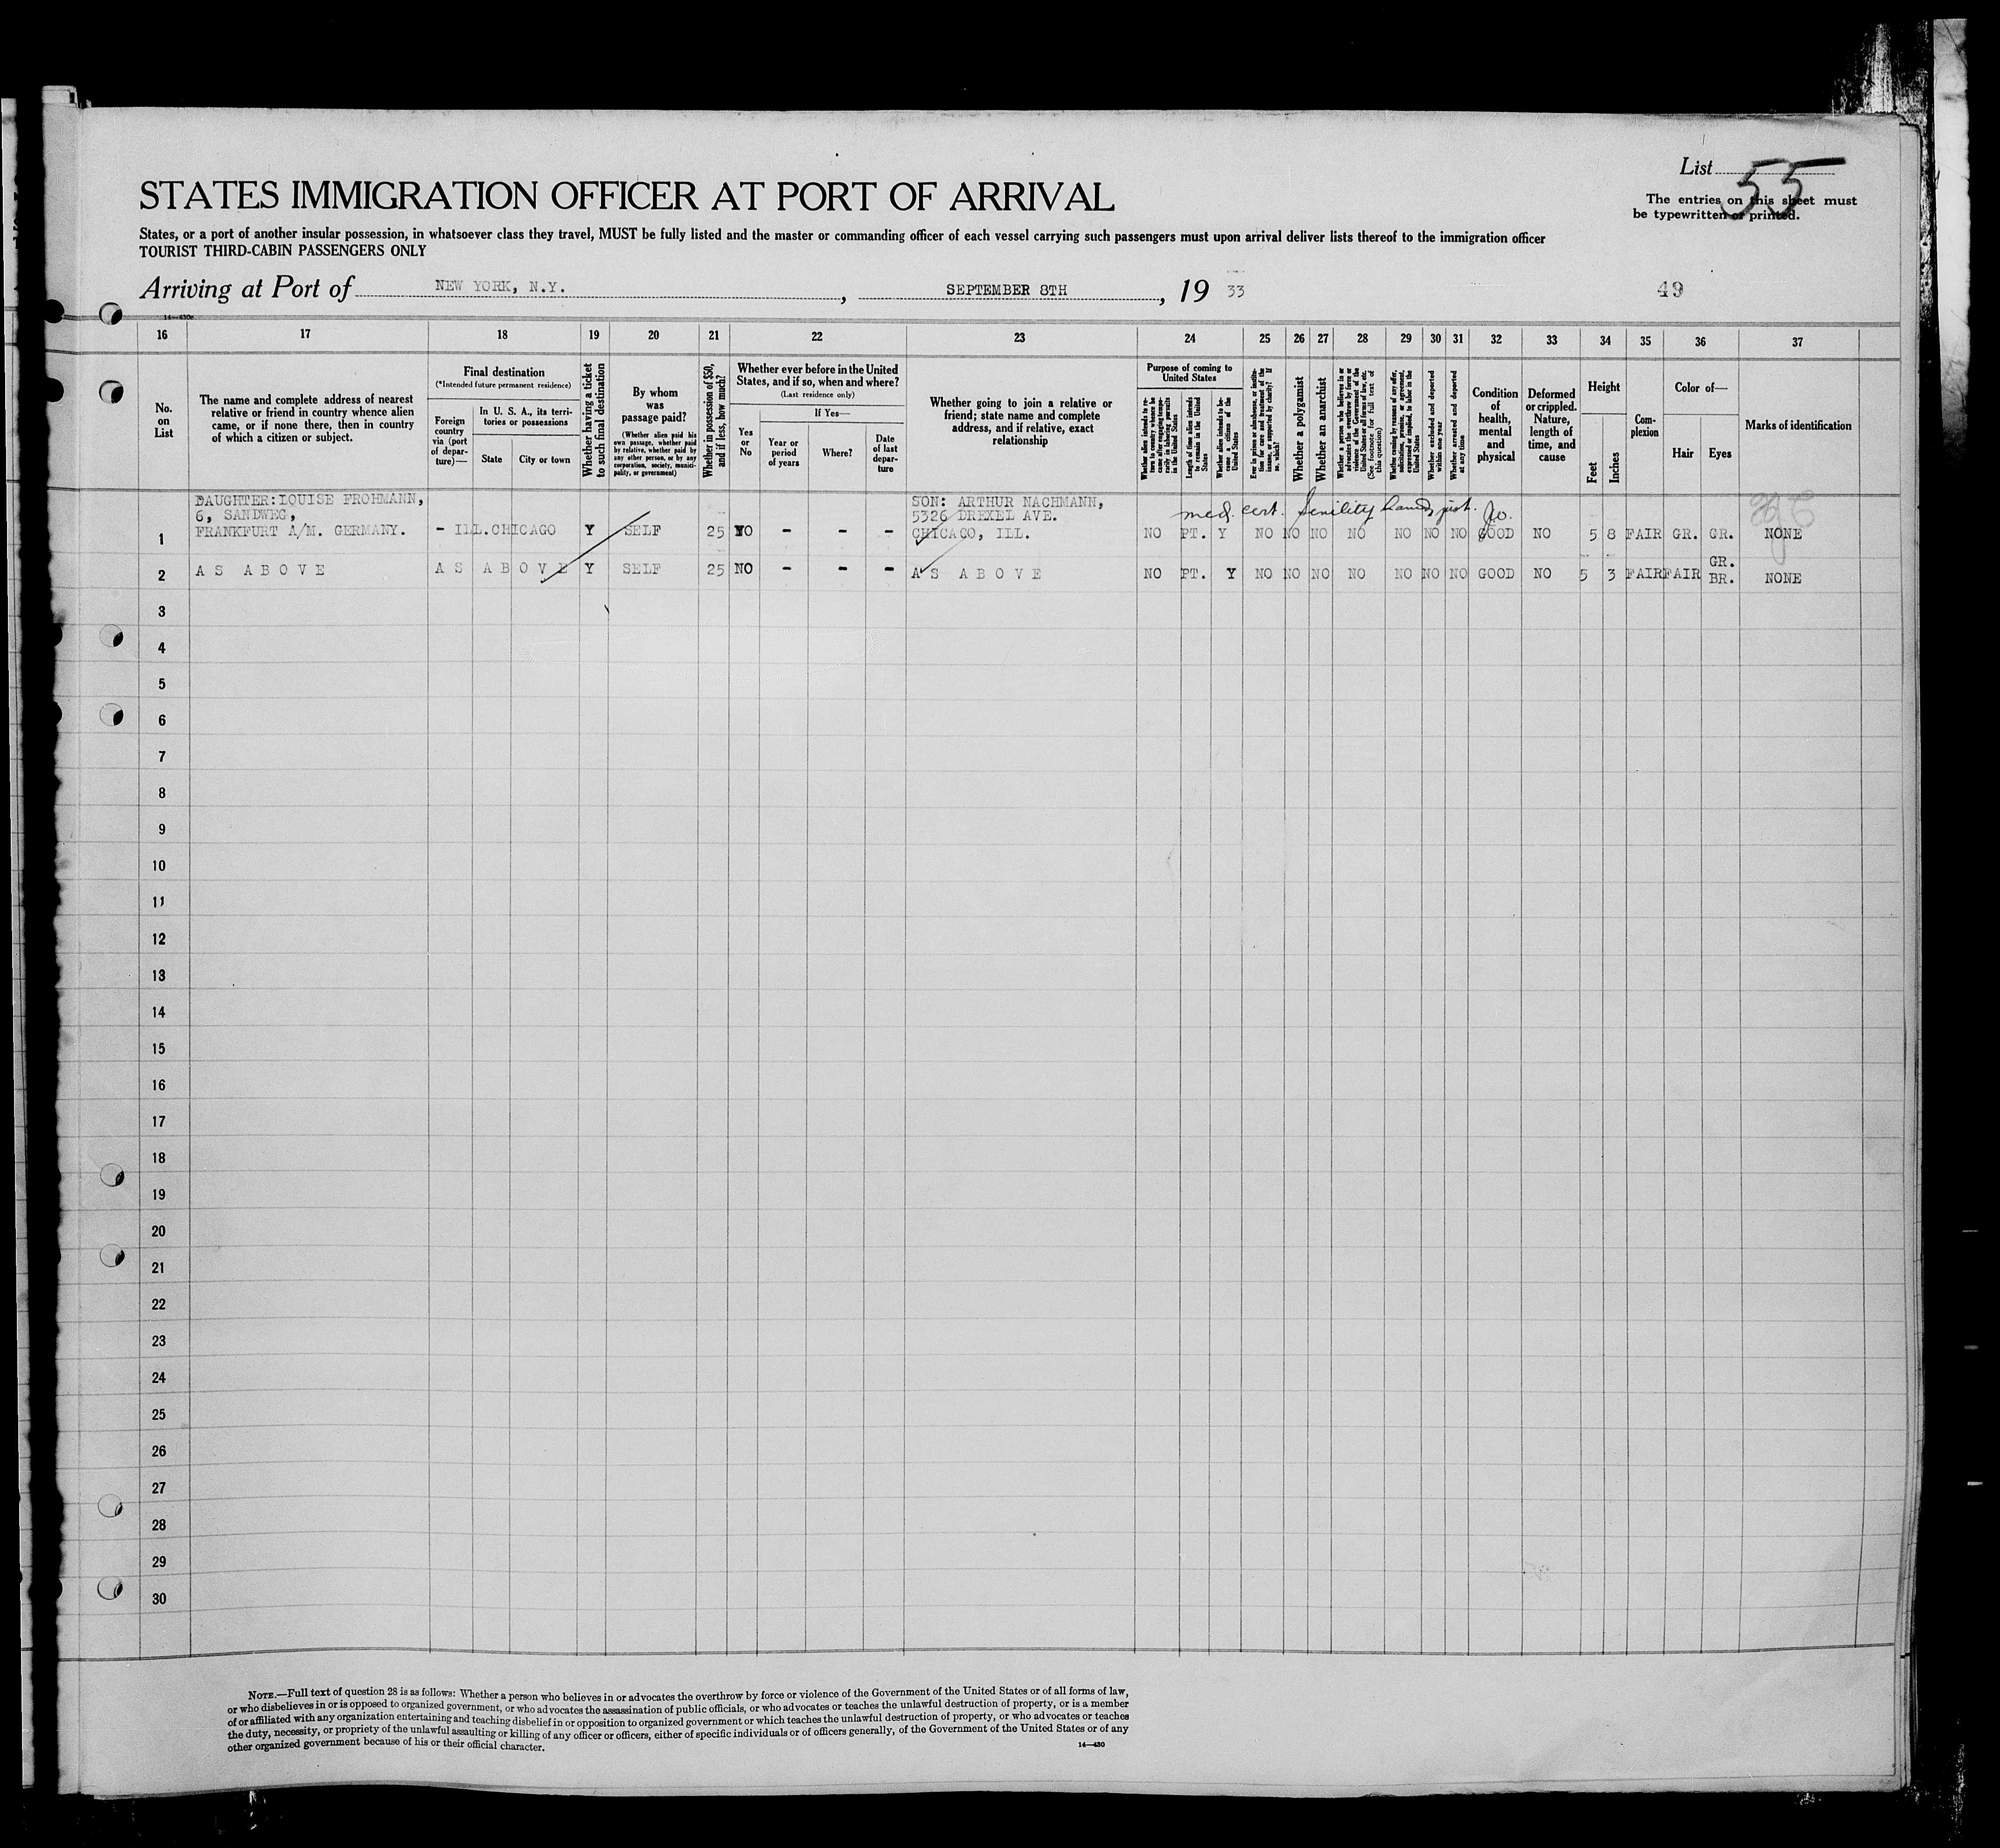 List 55
STATES IMMIGRATION OFFICER AT PORT OF ARRIVAL
The entries on this sheet must
be typewritten or printed.
States, or a port of another insular possession, in whatsoever class they travel, MUST be fully listed and the master or commanding officer of each vessel carrying such passengers must upon arrival deliver lists thereof to the immigration officer
TOURIST THIRD-CABIN PASSENGERS ONLY
Arriving at Port of NEW YORK, N.Y. , SEPTEMBER 8TH , 19 33
49
16 17 18 19 20 21 22 23 24 25 26 27 28 29 30 31 32 33 34 35 36 37
No.
on
List
The name and complete address of nearest
relative or friend in country whence alien
came, or if none there, then in country
of which a citizen or subject.
Final destination
(*Intended future permanent residence)
Foreign
country
via (port
of depar-
ture)—
In U. S. A., its terri-
tories or possessions
State City or town
Whether having a ticket
to such final destination
By whom
was
passage paid?
(Whether alien paid his
own passage, whether paid
by relative, whether paid by
any other person, or by any
corporation, society, munici-
pality, or government)
Whether in possession of $50,
and if less, how much?
Whether ever before in the United
States, and if so, when and where?
(Last residence only)
Yes
or
No
If Yes—
Year or
period
of years
Where?
Date
of last
depar-
ture
Whether going to join a relative or
friend; state name and complete
address, and if relative, exact
relationship
Purpose of coming to
United States
Whether alien intends to re-
turn to country whence he
came after engaging tempo-
rarily in laboring pursuits
in the United States
Length of time alien intends
to remain in the United
States
Whether alien intends to be-
come a citizen of the
United States
Ever in prison or almshouse, or institu-
tion for care and treatment of the
insane, or supported by charity? If
so, which?
Whether a polygamist
Whether an anarchist
Whether a person who believes in or
advocates the overthrow by force or
violence of the Government of the
United States or all forms of law, etc.
(See footnote for full text of
this question)
Whether coming by reasons of any offer,
solicitation, promise, or agreement,
expressed or implied, to labor in the
United States
Whether excluded and deported
within one year
Whether arrested and deported
at any time
Condition
of
health,
mental
and
physical
Deformed
or crippled.
Nature,
length of
time, and
cause
Height
Feet Inches
Com-
plexion
Color of—
Hair Eyes
Marks of identification
DAUGHTER: LOUISE FROHMANN,
6, SANDWEG,
FRANKFURT A/M. GERMANY.
SON: ARTHUR NACHMANN,
5326 DREXEL AVE.
CHICAGO, ILL.
med. cert. Senility
1 - ILL. CHICAGO Y SELF 25 NO - - - NO PT. Y NO NO NO NO NO NO NO GOOD NO 5 8 FAIR GR. GR. NONE
2 AS ABOVE AS ABOVE Y SELF 25 NO - - - AS ABOVE NO PT. Y NO NO NO NO NO NO NO GOOD NO 5 3 FAIR FAIR GR.
BR. NONE
3
4
5
6
7
8
9
10
11
12
13
14
15
16
17
18
19
20
21
22
23
24
25
26
27
28
29
30
NOTE.—Full text of question 28 is as follows: Whether a person who believes in or advocates the overthrow by force or violence of the Government of the United States or of all forms of law,
or who disbelieves in or is opposed to organized government, or who advocates the assassination of public officials, or who advocates or teaches the unlawful destruction of property, or is a member
of or affiliated with any organization entertaining and teaching disbelief in or opposition to organized government or which teaches the unlawful destruction of property, or who advocates or teaches
the duty, necessity, or propriety of the unlawful assaulting or killing of any officer or officers, either of specific individuals or of officers generally, of the Government of the United States or of any
other organized government because of his or their official character.
14—430